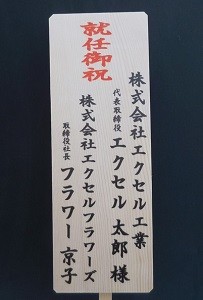 就任御祝
株式会社エクセル工業
代表取締役 エクセル 太郎 様
株式会社エクセルフラワーズ
取締役社長 フラワー 京子